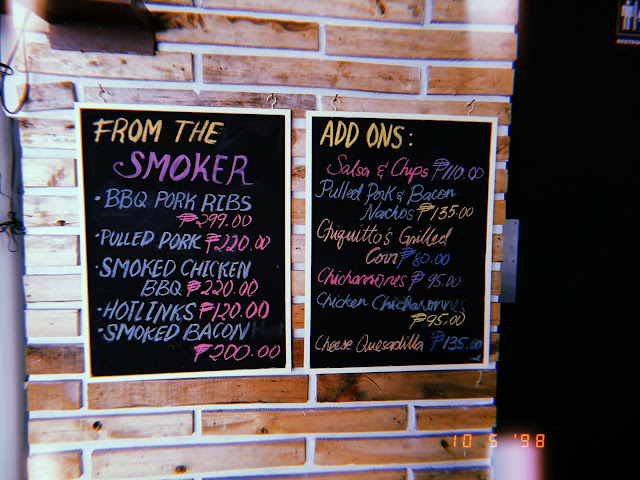 FROM THE
SMOKER
• BBQ PORK RIBS
₱299.00
• PULLED PORK ₱220.00
• SMOKED CHICKEN
BBQ ₱220.00
• HOTLINKS ₱120.00
• SMOKED BACON
₱200.00
ADD ONS:
Salsa & Chips ₱110.00
Pulled Pork & Bacon
Nachos ₱135.00
Chiquitto's Grilled
Corn ₱80.00
Chicharrones ₱95.00
Chicken Chicharrones
₱95.00
Cheese Quesadilla ₱135.00
10 5 '98